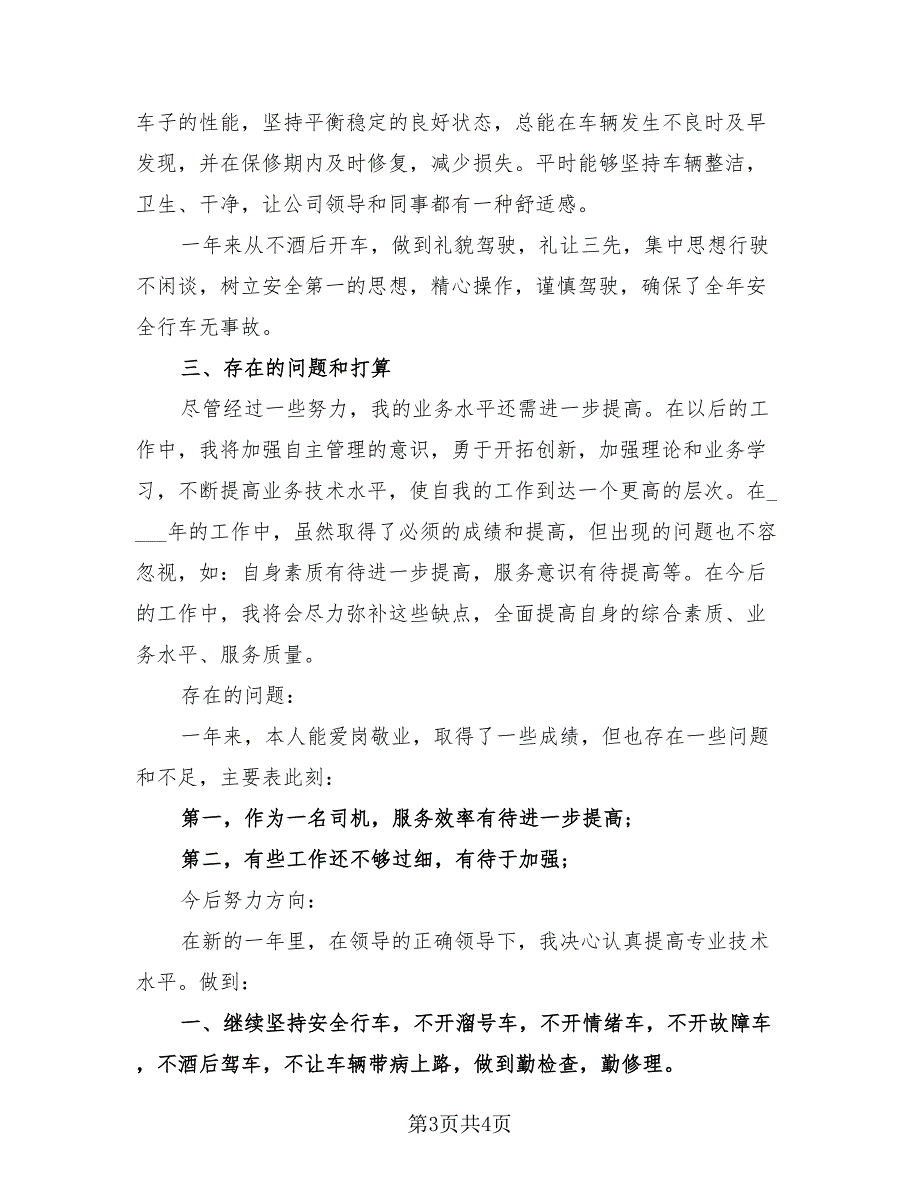 车子的性能，坚持平衡稳定的良好状态，总能在车辆发生不良时及早
发现，并在保修期内及时修复，减少损失。平时能够坚持车辆整洁，
卫生、干净，让公司领导和同事都有一种舒适感。
一年来从不酒后开车，做到礼貌驾驶，礼让三先，集中思想行驶
不闲谈，树立安全第一的思想，精心操作，谨慎驾驶，确保了全年安
全行车无事故。
三、存在的问题和打算
尽管经过一些努力，我的业务水平还需进一步提高。在以后的工
作中，我将加强自主管理的意识，勇于开拓创新，加强理论和业务学
习，不断提高业务技术水平，使自我的工作到达一个更高的层次。在_
___年的工作中，虽然取得了必须的成绩和提高，但出现的问题也不容
忽视，如：自身素质有待进一步提高，服务意识有待提高等。在今后
的工作中，我将会尽力弥补这些缺点，全面提高自身的综合素质、业
务水平、服务质量。
存在的问题：
一年来，本人能爱岗敬业，取得了一些成绩，但也存在一些问题
和不足，主要表此刻：
第一，作为一名司机，服务效率有待进一步提高；
第二，有些工作还不够过细，有待于加强；
今后努力方向：
在新的一年里，在领导的正确领导下，我决心认真提高专业技术
水平。做到：
一、继续坚持安全行车，不开溜号车，不开情绪车，不开故障车
，不酒后驾车，不让车辆带病上路，做到勤检查，勤修理。
第3页共4页